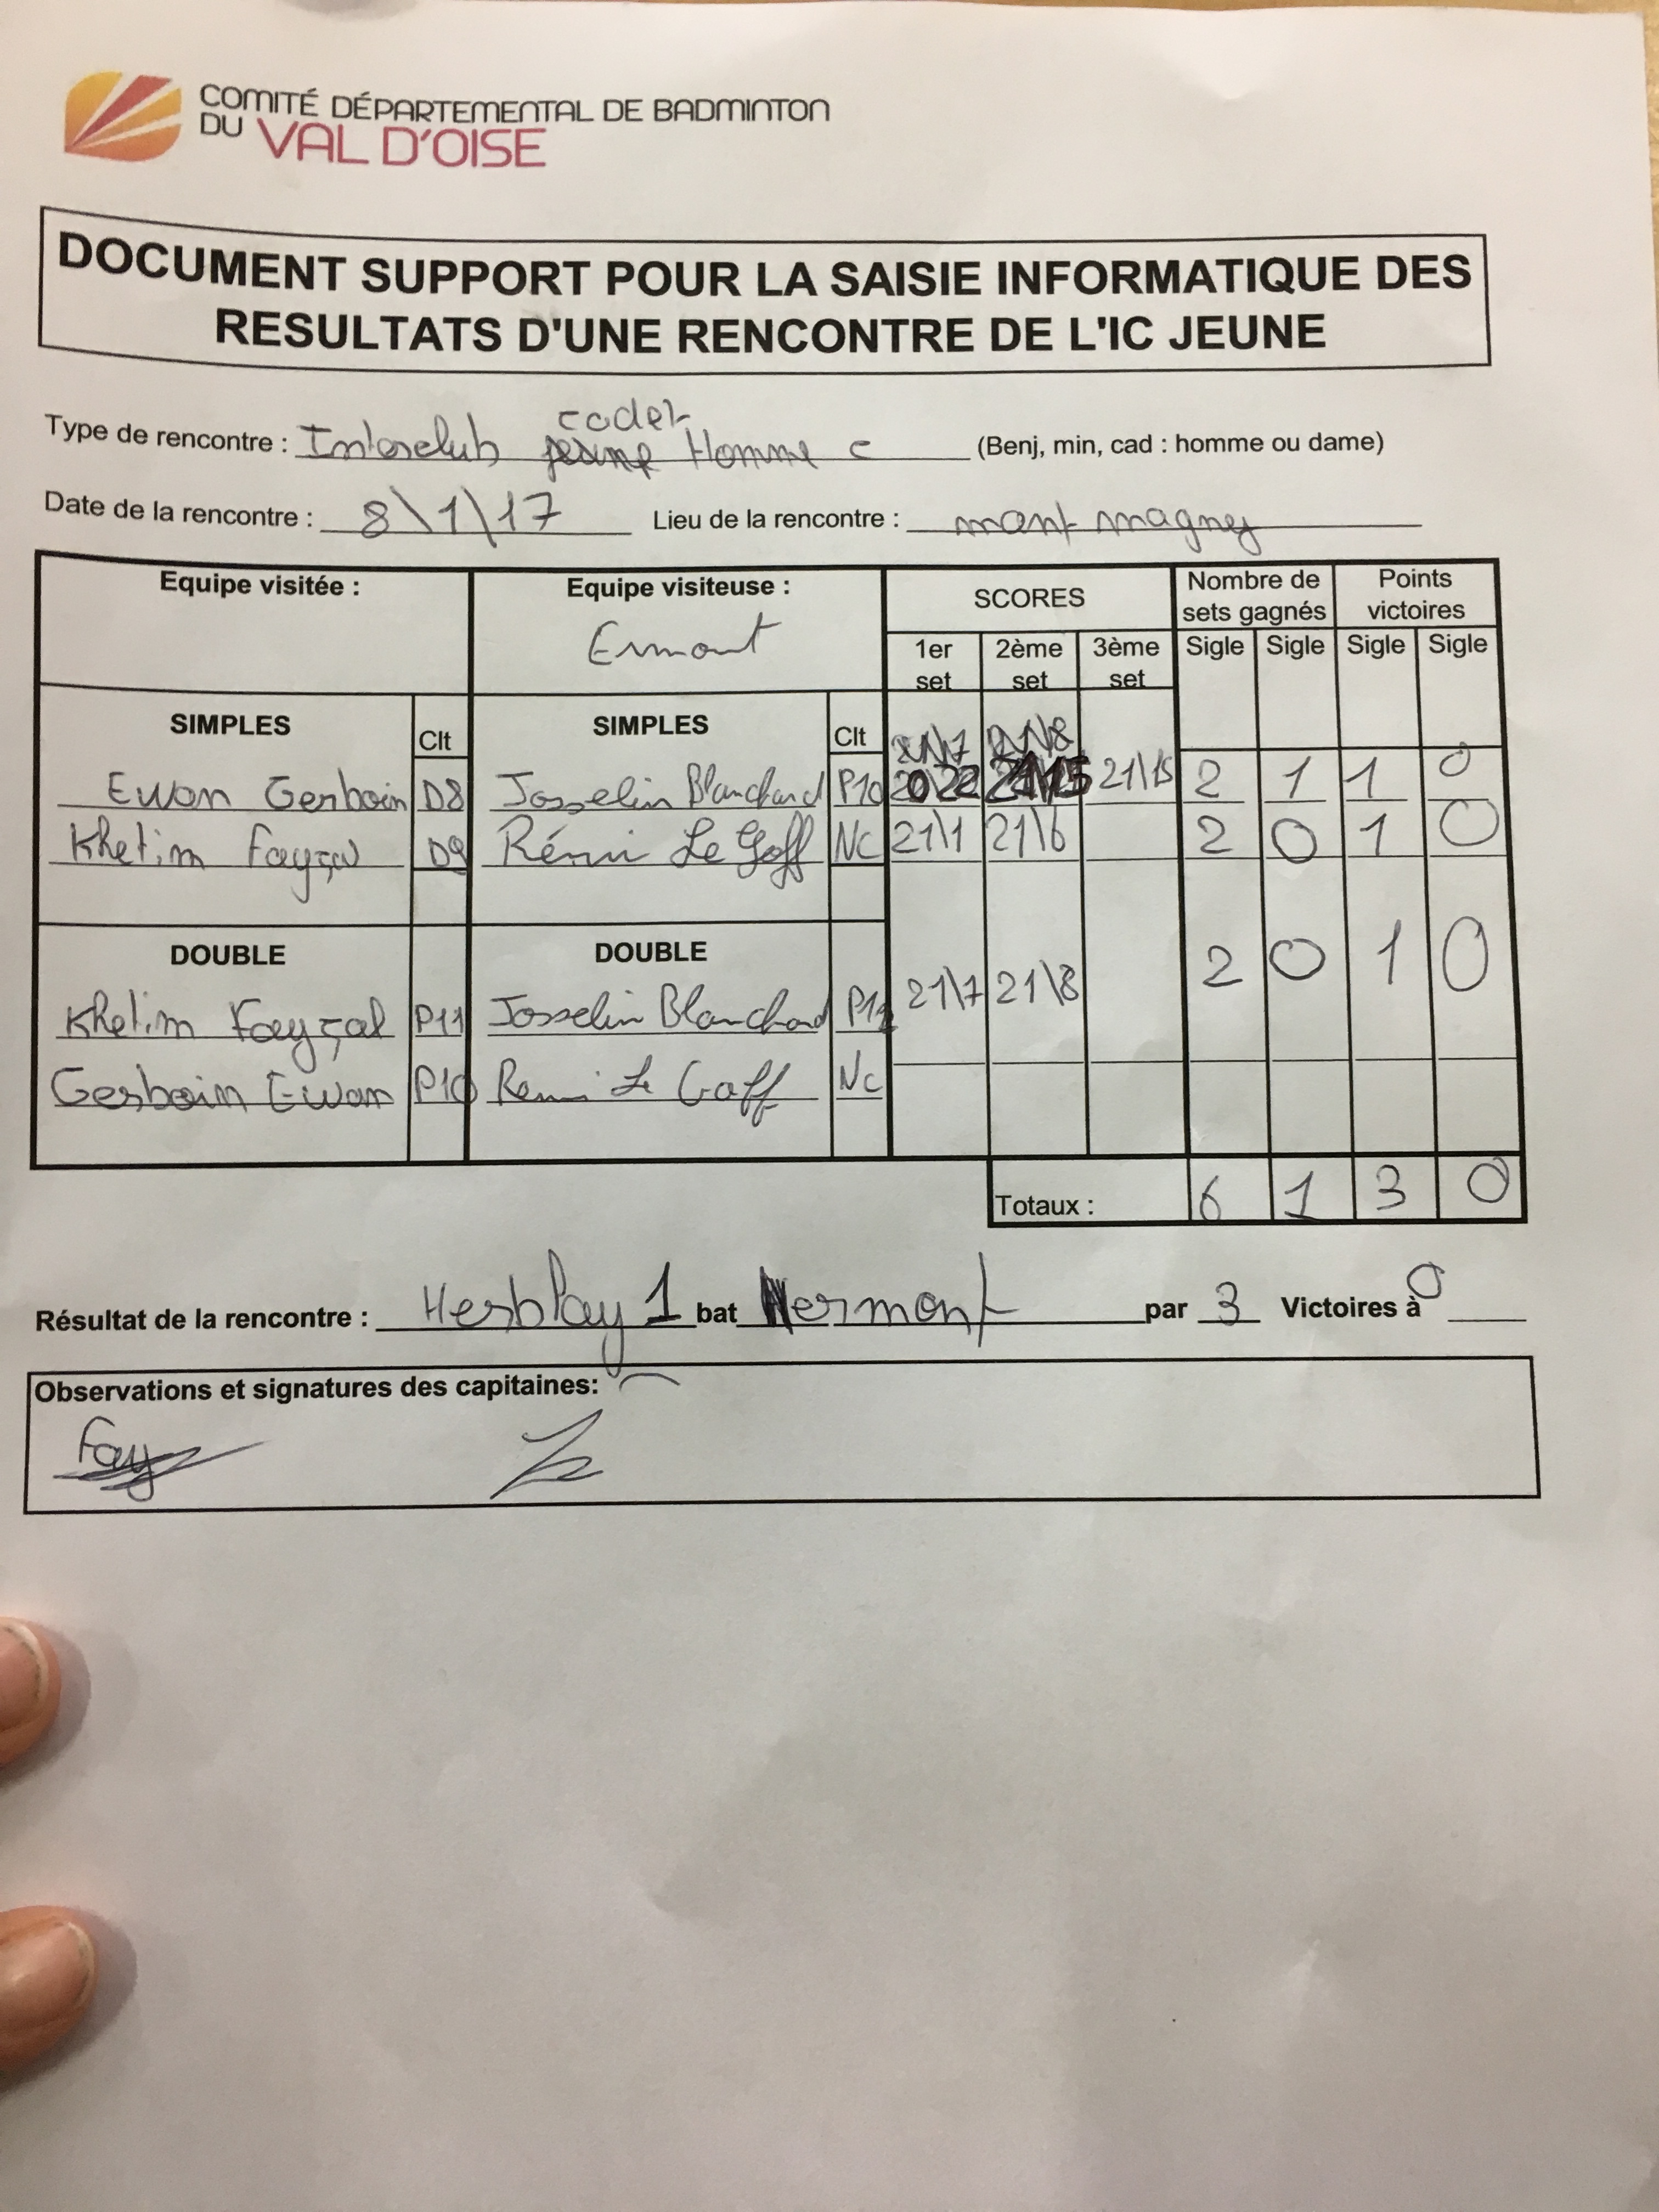 COMITÉ DÉPARTEMENTAL DE BADMINTON
DU VAL D'OISE
DOCUMENT SUPPORT POUR LA SAISIE INFORMATIQUE DES
RESULTATS D'UNE RENCONTRE DE L'IC JEUNE
cadet
Type de rencontre : Interclub Homme c (Benj, min, cad : homme ou dame)
Date de la rencontre : 8\1\17 Lieu de la rencontre : mont magny
Equipe visitée : Equipe visiteuse : SCORES Nombre de sets gagnés Points victoires
Ermont
1er set 2ème set 3ème set Sigle Sigle Sigle Sigle
SIMPLES Clt SIMPLES Clt
Ewan Gerboin D8 Josselin Blanchard P10 21\15 2 1 1 0
Khetim Fayçal D9 Rémi Le Goff NC 21\1 21\6 2 0 1 0
DOUBLE DOUBLE
Khetim Fayçal P11 Josselin Blanchard 21\7 21\8 2 0 1 0
Gerboin Ewan P10 Remi Le Goff Nc
Totaux : 6 1 3 0
Résultat de la rencontre : Herblay 1 bat Hermont par 3 Victoires à 0
Observations et signatures des capitaines:
Fay